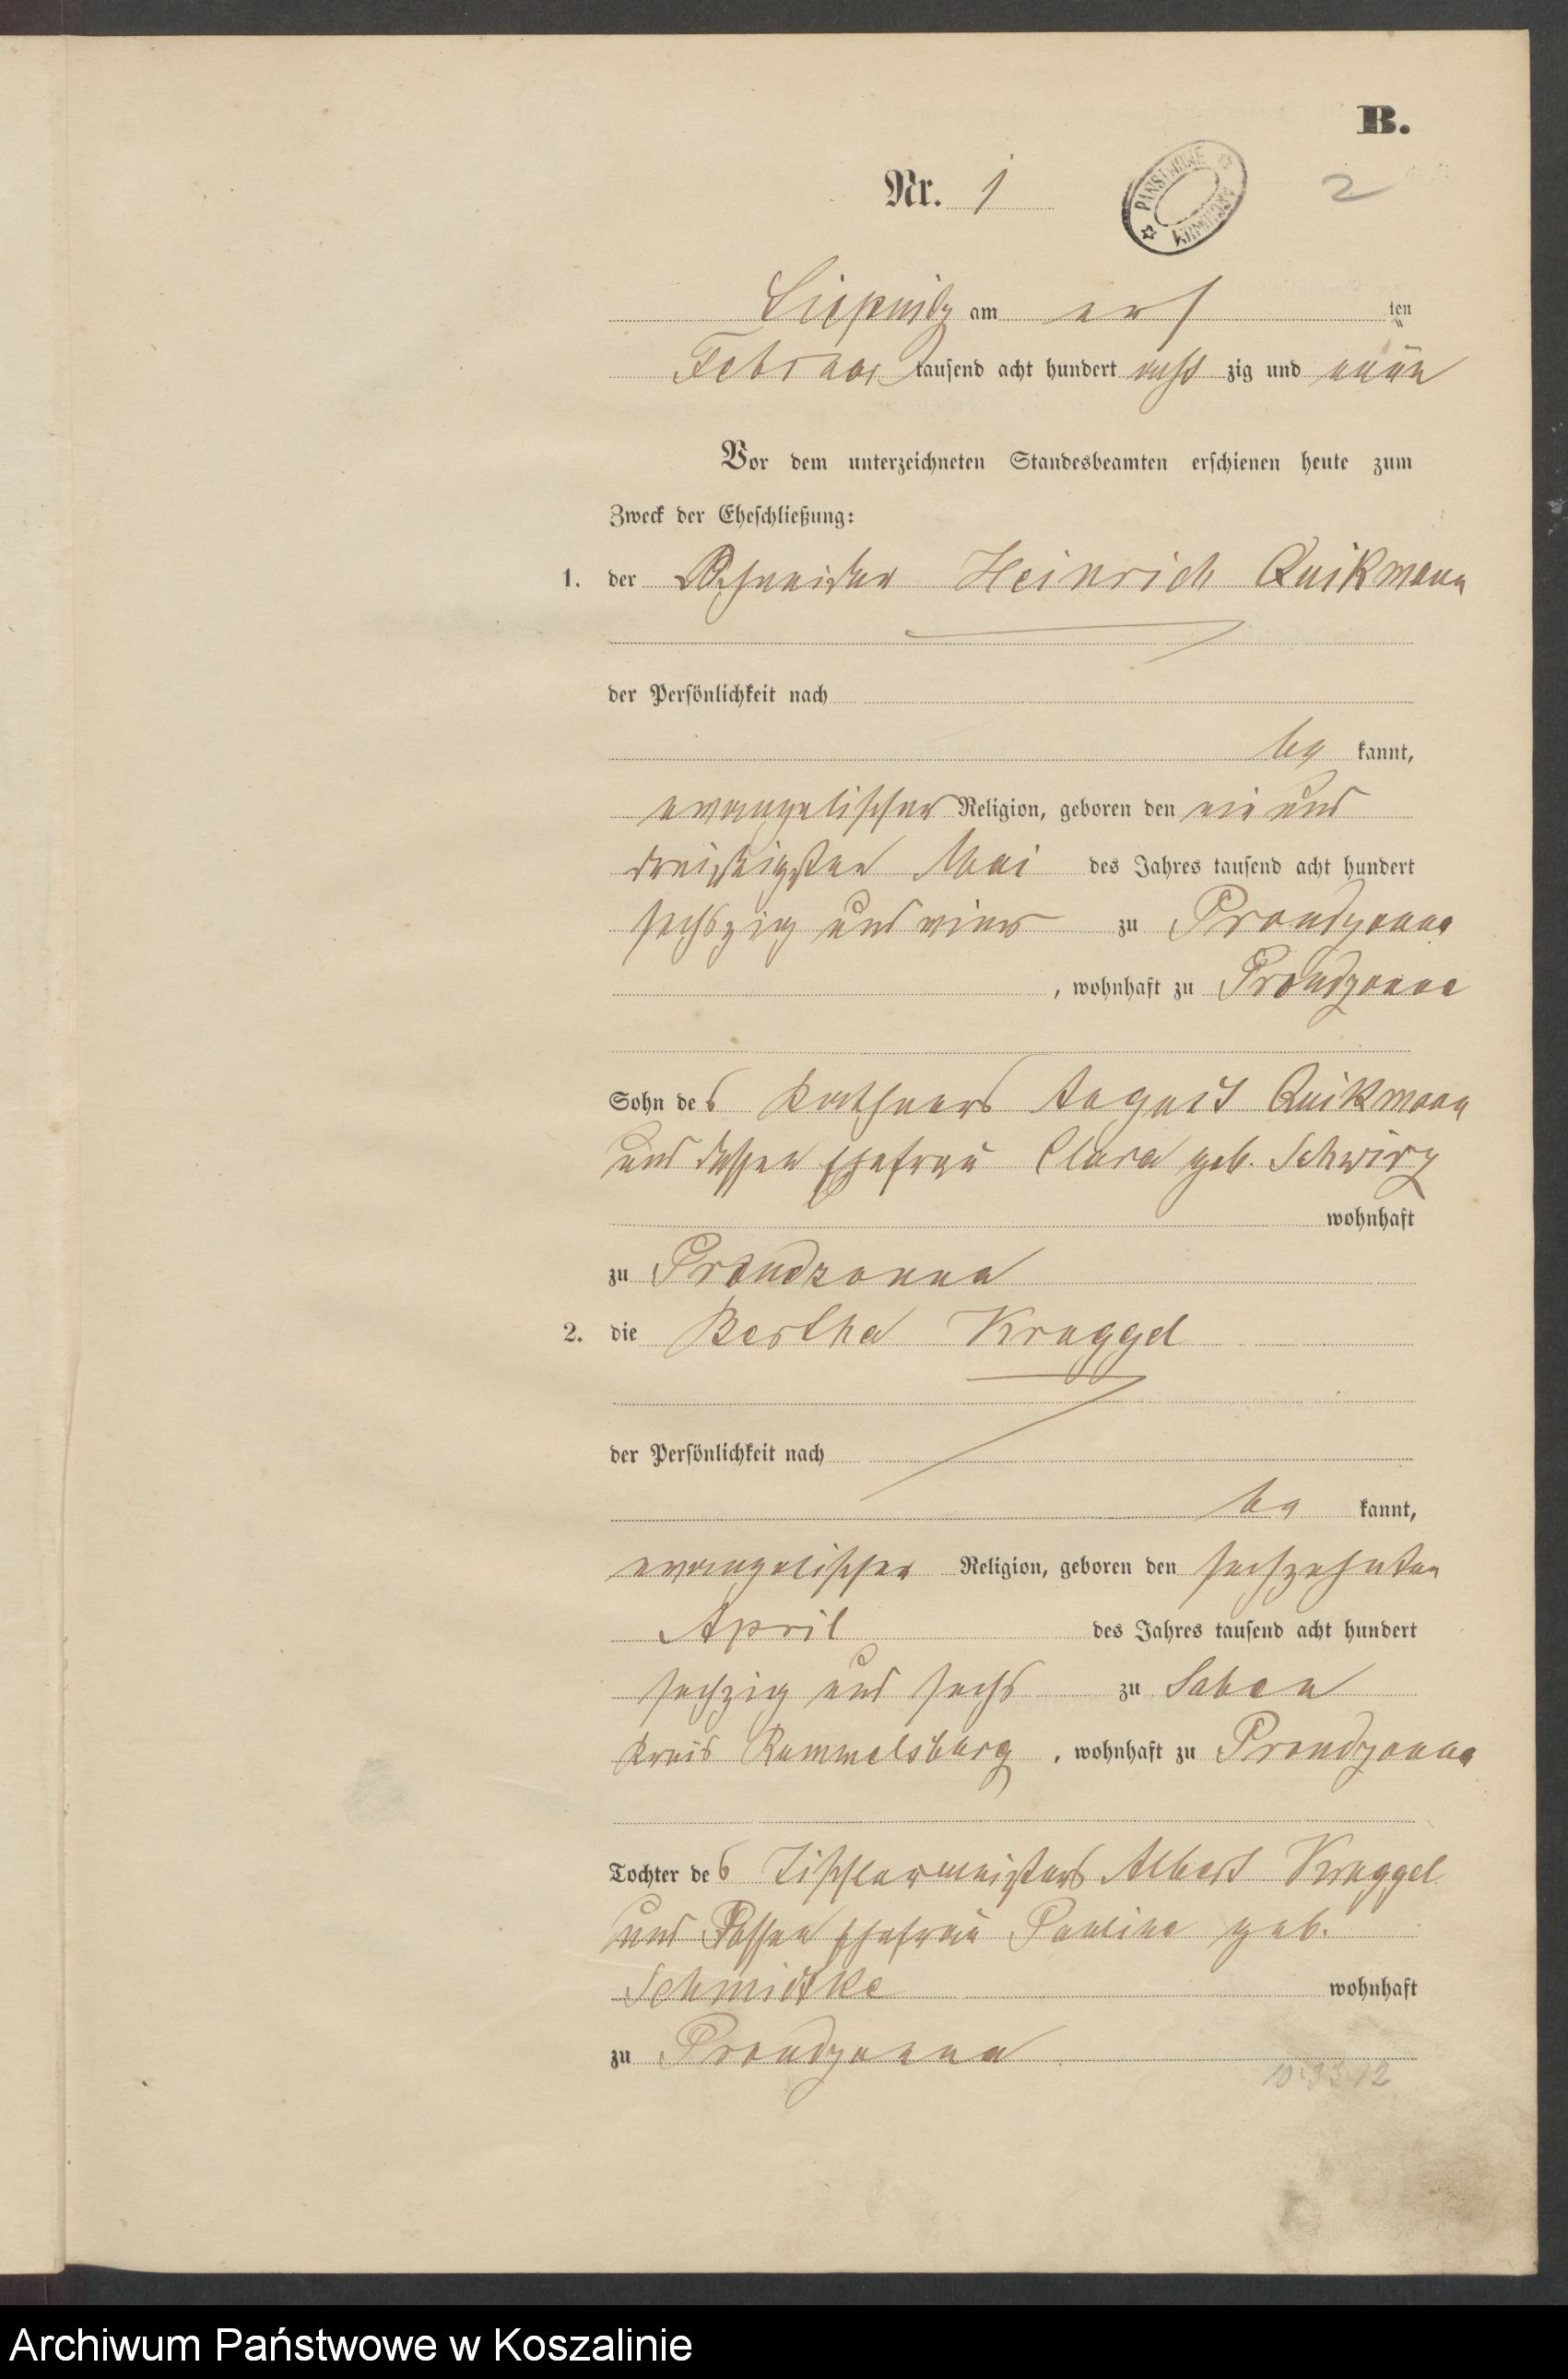 B.
Nr. 1
PAŃSTWOWE ARCHIWUM
2
Liepnitz am ten
Februar tausend acht hundert acht zig und neun
Vor dem unterzeichneten Standesbeamten erschienen heute zum
Zweck der Eheschließung:
1. der Schneider Heinrich Quikmann
der Persönlichkeit nach
be kannt,
evangelischer Religion, geboren den ein und
dreißigsten Mai des Jahres tausend acht hundert
sechszig und vier zu Prondzonna
, wohnhaft zu Prondzonna
Sohn des Kathners August Quikmann
und dessen Ehefrau Clara geb. Schwirz
wohnhaft
zu Prondzonna
2. die Bertha Kruggel
der Persönlichkeit nach
be kannt,
evangelischer Religion, geboren den sechzehnten
April des Jahres tausend acht hundert
sechzig und sechs zu Saben
Kreis Rummelsburg , wohnhaft zu Prondzonna
Tochter des Tischlermeisters Albert Kruggel
und dessen Ehefrau Pauline geb.
Schmidtke wohnhaft
zu Prondzonna
Archiwum Państwowe w Koszalinie